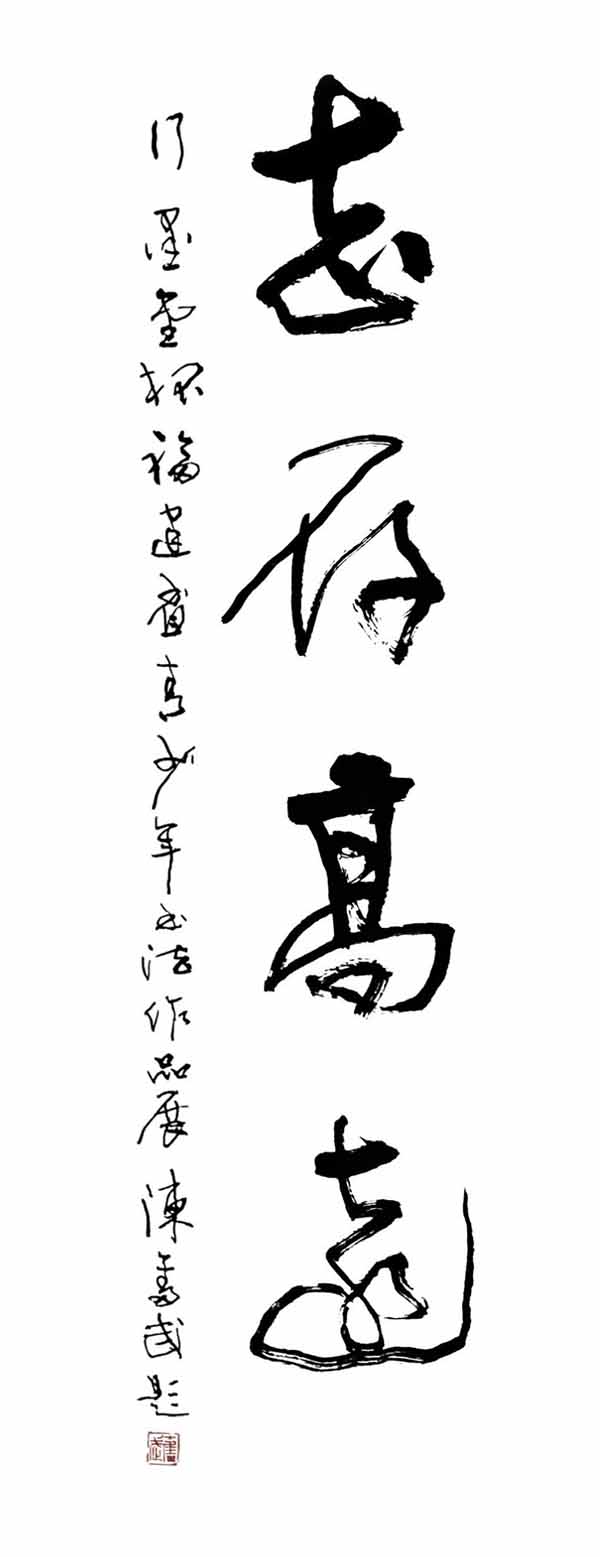 志存高遠
行墨堂杯福建省青少年书法作品展 陳奮武題